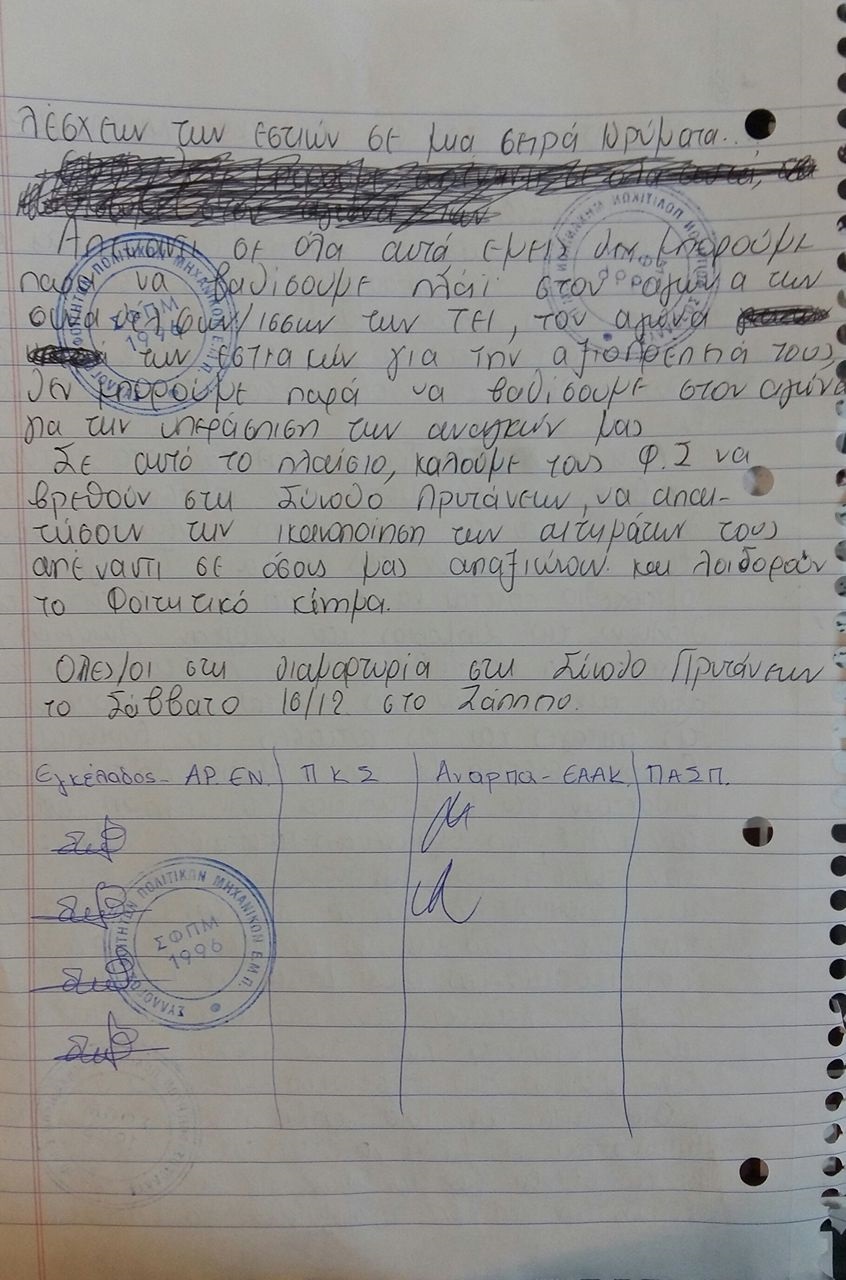 λέσχεων των εστιών σε μια σειρά ιδρύματα.
Απέναντι σε όλα αυτά εμείς δεν μπορούμε
παρά να βαδίσουμε πλάι στον αγώνα των
συναδέλφων/ισσων των ΤΕΙ, τον αγώνα
των εστιακών για την αξιοπρέπειά τους,
δεν μπορούμε παρά να βαδίσουμε στον αγώνα
για την υπεράσπιση των αναγκών μας
Σε αυτό το πλαίσιο, καλούμε τους Φ.Σ να
βρεθούν στη Σύνοδο Πρυτάνεων, να απαι-
τήσουν την ικανοποίηση των αιτημάτων τους
απέναντι σε όσους μας απαξιώνουν και λοιδορούν
το Φοιτητικό κίνημα.
Όλες/οι στη διαμαρτυρία στη Σύνοδο Πρυτάνεων
το Σάββατο 16/12 στο Ζάππειο.
Εγκέλαδος - ΑΡ.ΕΝ. ΠΚΣ Αναρπα - ΕΑΑΚ ΠΑΣΠ.
ΣΥΛΛΟΓΟΣ ΦΟΙΤΗΤΩΝ ΠΟΛΙΤΙΚΩΝ ΜΗΧΑΝΙΚΩΝ Ε.Μ.Π.
ΣΦΠΜ
1996
ΣΥΛΛΟΓΟΣ ΦΟΙΤΗΤΩΝ ΠΟΛΙΤΙΚΩΝ ΜΗΧΑΝΙΚΩΝ Ε.Μ.Π.
ΣΦΠΜ
1996